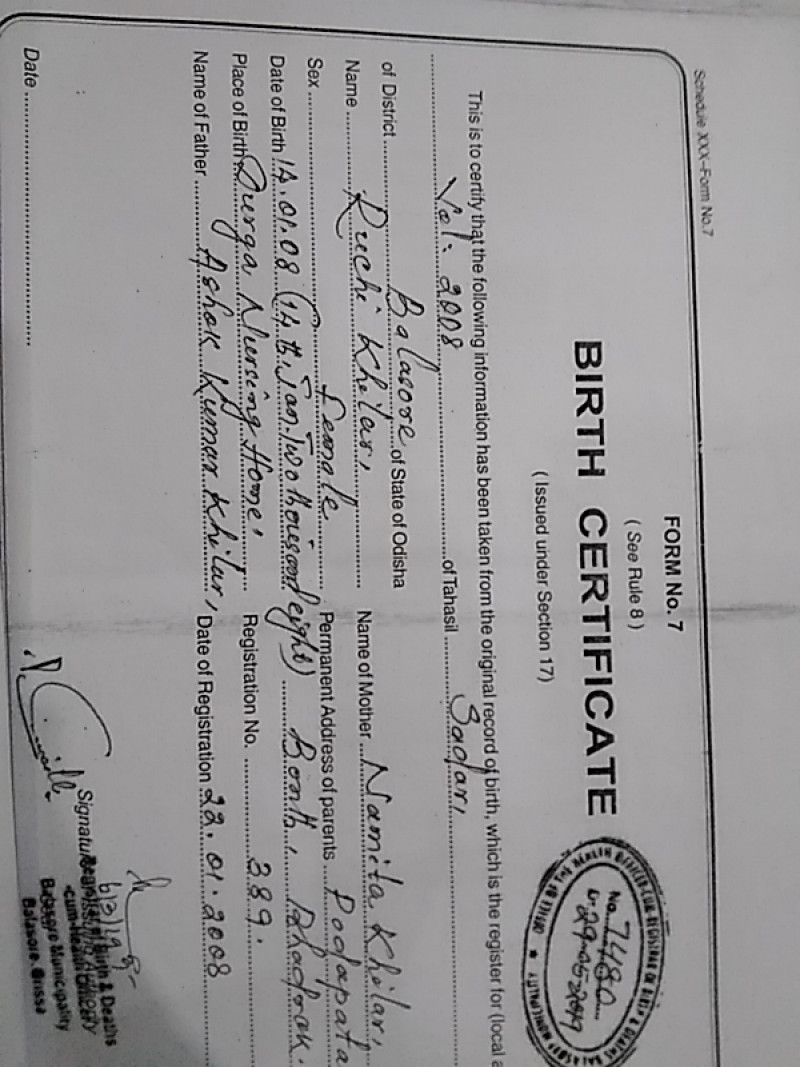 Schedule XXX-Form No.7
FORM No. 7
( See Rule 8 )
BIRTH CERTIFICATE
( Issued under Section 17)
No. 7480
D. 29.05.2019
This is to certify that the following information has been taken from the original record of birth, which is the register for (local a
Vol: 2008 of Tahasil Sadar,
of District Balasore of State of Odisha
Name Ruchi Khilar, Name of Mother Namita Khilar,
Sex Female Permanent Address of parents Podapata
Date of Birth 14.01.08 (14th, Jan. Two thousand eight) Bonth, Bhadrak.
Place of Birth Durga Nursing Home, Registration No. 389.
Name of Father Ashok Kumar Khilar, Date of Registration 22.01.2008
Date
Birth & Deaths
-cum-Health
Balasore Municipality
Balasore, Orissa